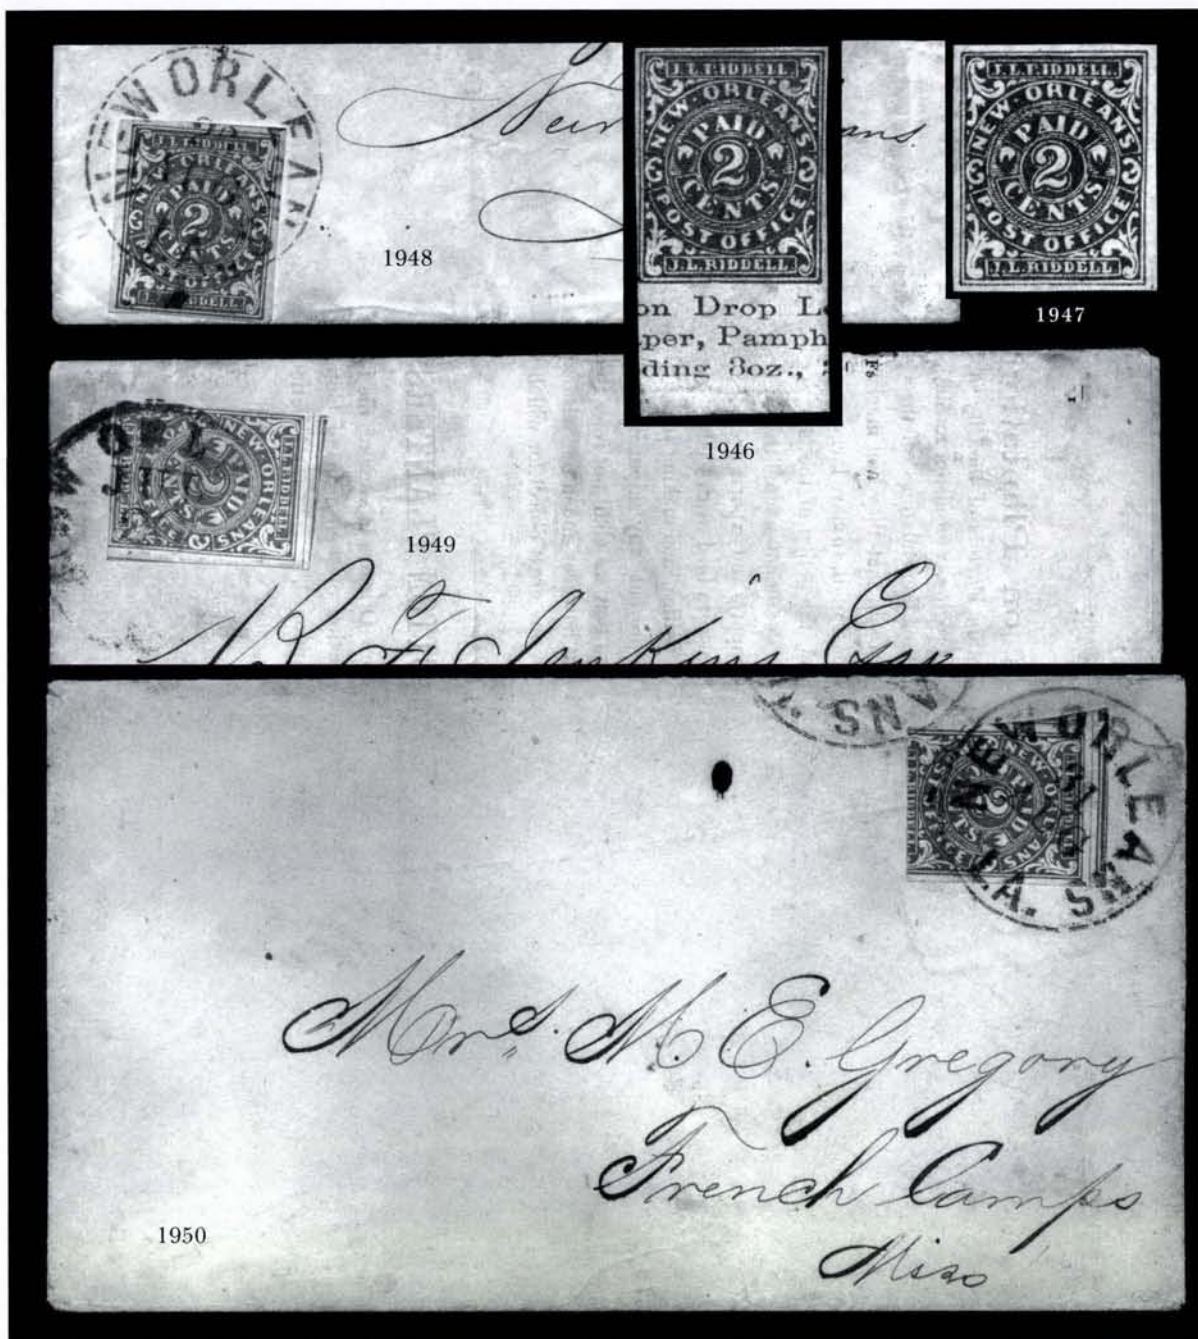 NEW ORLEAN
J.L. RIDDELL.
NEW ORLEANS
PAID
2
CENTS
POST OF
J.L. RIDDELL.
1948
New
ans.
J.L. RIDDELL.
NEW·ORLEANS
PAID
2
CENTS
POST OFFICE
J.L. RIDDELL
on Drop Le
per, Pamph
ding 3oz., 2
1946
J.L. RIDDELL.
NEW·ORLEANS
PAID
2
CENTS
POST OFFICE
J.L. RIDDELL.
1947
J.L. RIDDELL
NEW·ORLEANS
PAID
2
CENTS
1949
R F Jenkins Esqr
ANS
NEW ORLEANS
LA.
NEW·ORLEANS
PAID
2
CENTS
Mrs. M. E. Gregory
French Camps
Miss
1950